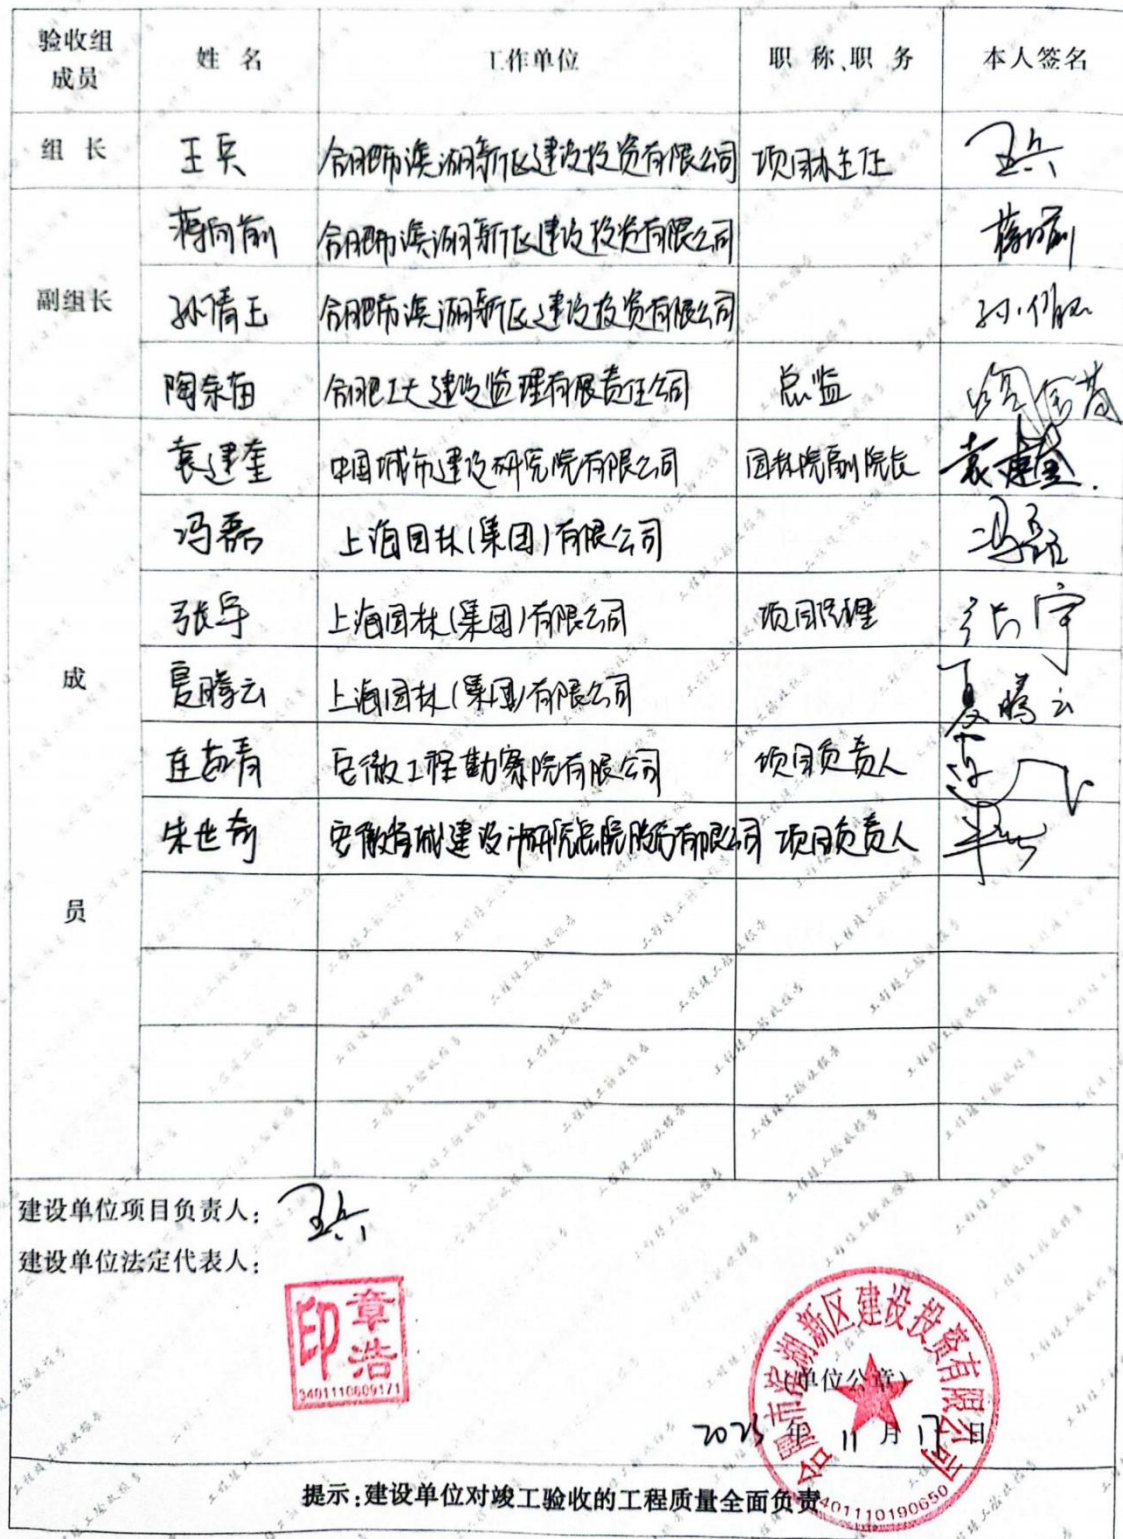 验收组成员 姓 名 工作单位 职 称、职 务 本人签名
组 长 王兵 合肥市滨湖新区建设投资有限公司 项目办主任 王兵
副组长 蒋向前 合肥市滨湖新区建设投资有限公司 蒋向前
孙倩玉 合肥市滨湖新区建设投资有限公司
陶余苗 合肥工大建设监理有限责任公司 总监
成员 袁建奎 中国城市建设研究院有限公司 园林院副院长 袁建奎
冯磊 上海园林(集团)有限公司 冯磊
张宇 上海园林(集团)有限公司 项目经理 张宇
夏腾云 上海园林(集团)有限公司 夏腾云
连海青 安徽工程勘察院有限公司 项目负责人
朱世奇 安徽省城建设计研究总院股份有限公司 项目负责人
建设单位项目负责人: 王兵
建设单位法定代表人:
章浩印
3401110609171
合肥市滨湖新区建设投资有限公司
(单位公章)
2023 年 11 月 17 日
3401110190650
提示:建设单位对竣工验收的工程质量全面负责
工程竣工验收报告